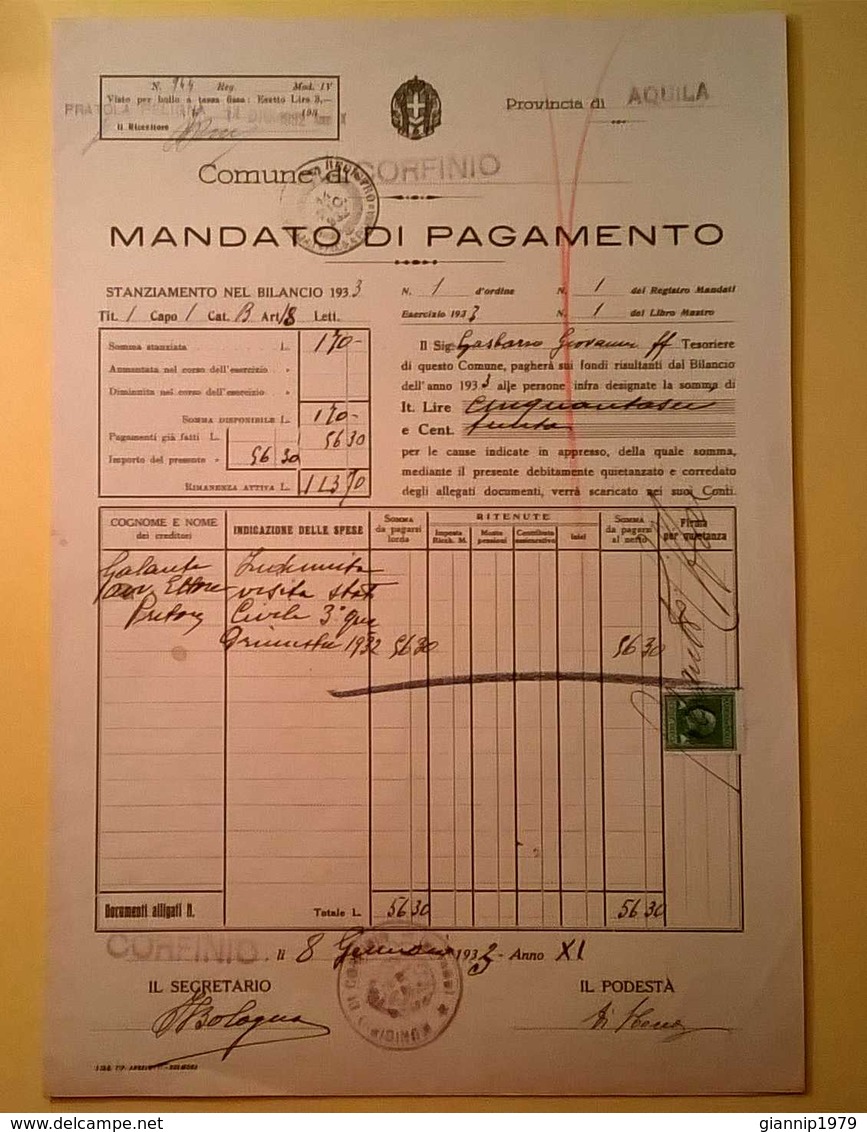 N. 944 Reg. Mod. IV
Visto per bollo a tassa fissa: Esatto Lire 3,—
PRATOLA PELIGNA 14
Il Ricevitore
Provincia di AQUILA
Comune di CORFINIO
MANDATO DI PAGAMENTO
STANZIAMENTO NEL BILANCIO 1933
Tit. 1 Capo 1 Cat. B Art. 18 Lett.
N. 1 d'ordine N. 1 del Registro Mandati
Esercizio 1933 N. 1 del Libro Mastro
Somma stanziata L. 170-
Aumentata nel corso dell'esercizio »
Diminuita nel corso dell'esercizio »
SOMMA DISPONIBILE L. 170-
Pagamenti già fatti L. 56 30
Importo del presente » 56 30
RIMANENZA ATTIVA L. 113 70
Il Sig. Gasbarro Giovanni ff Tesoriere
di questo Comune, pagherà sui fondi risultanti dal Bilancio
dell'anno 1933 alle persone infra designate la somma di
It. Lire Cinquantasei
e Cent. trenta
per le cause indicate in appresso, della quale somma,
mediante il presente debitamente quietanzato e corredato
degli allegati documenti, verrà scaricato nei suoi Conti.
COGNOME E NOME dei creditori
INDICAZIONE DELLE SPESE
SOMMA da pagarsi lorda
RITENUTE
Imposta Ricch. M.
Monte pensioni
Contributo assicurativo
SOMMA da pagarsi al netto
Firma per quietanza
Galante Indennità
cav. Ettore visita stato
Pretore Civile 3°
trimestre 1932 56 30 56 30
Documenti alligati N. Totale L. 56 30 56 30
CORFINIO li 8 Gennaio 1933 - Anno XI
IL SECRETARIO
IL PODESTÀ
Bologna
giannip1979